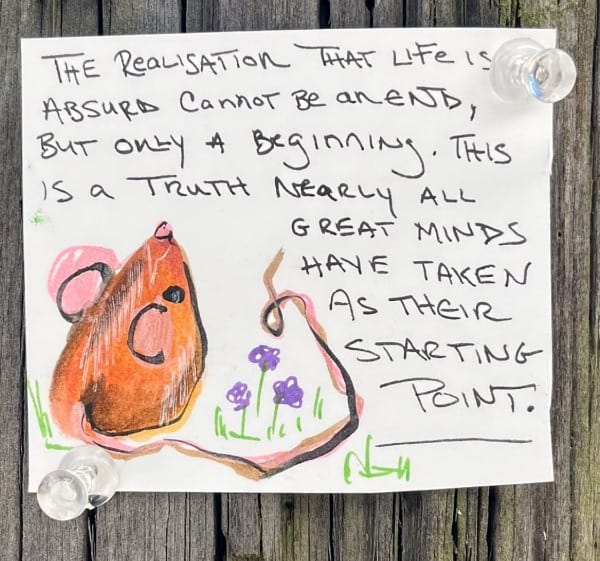 THE REALISATION THAT LIFE IS
ABSURD CANNOT BE an END,
BUT ONLY A BEGINNING. THIS
IS a TRUTH NEARLY ALL
GREAT MINDS
HAVE TAKEN
AS THEIR
STARTING
POINT.